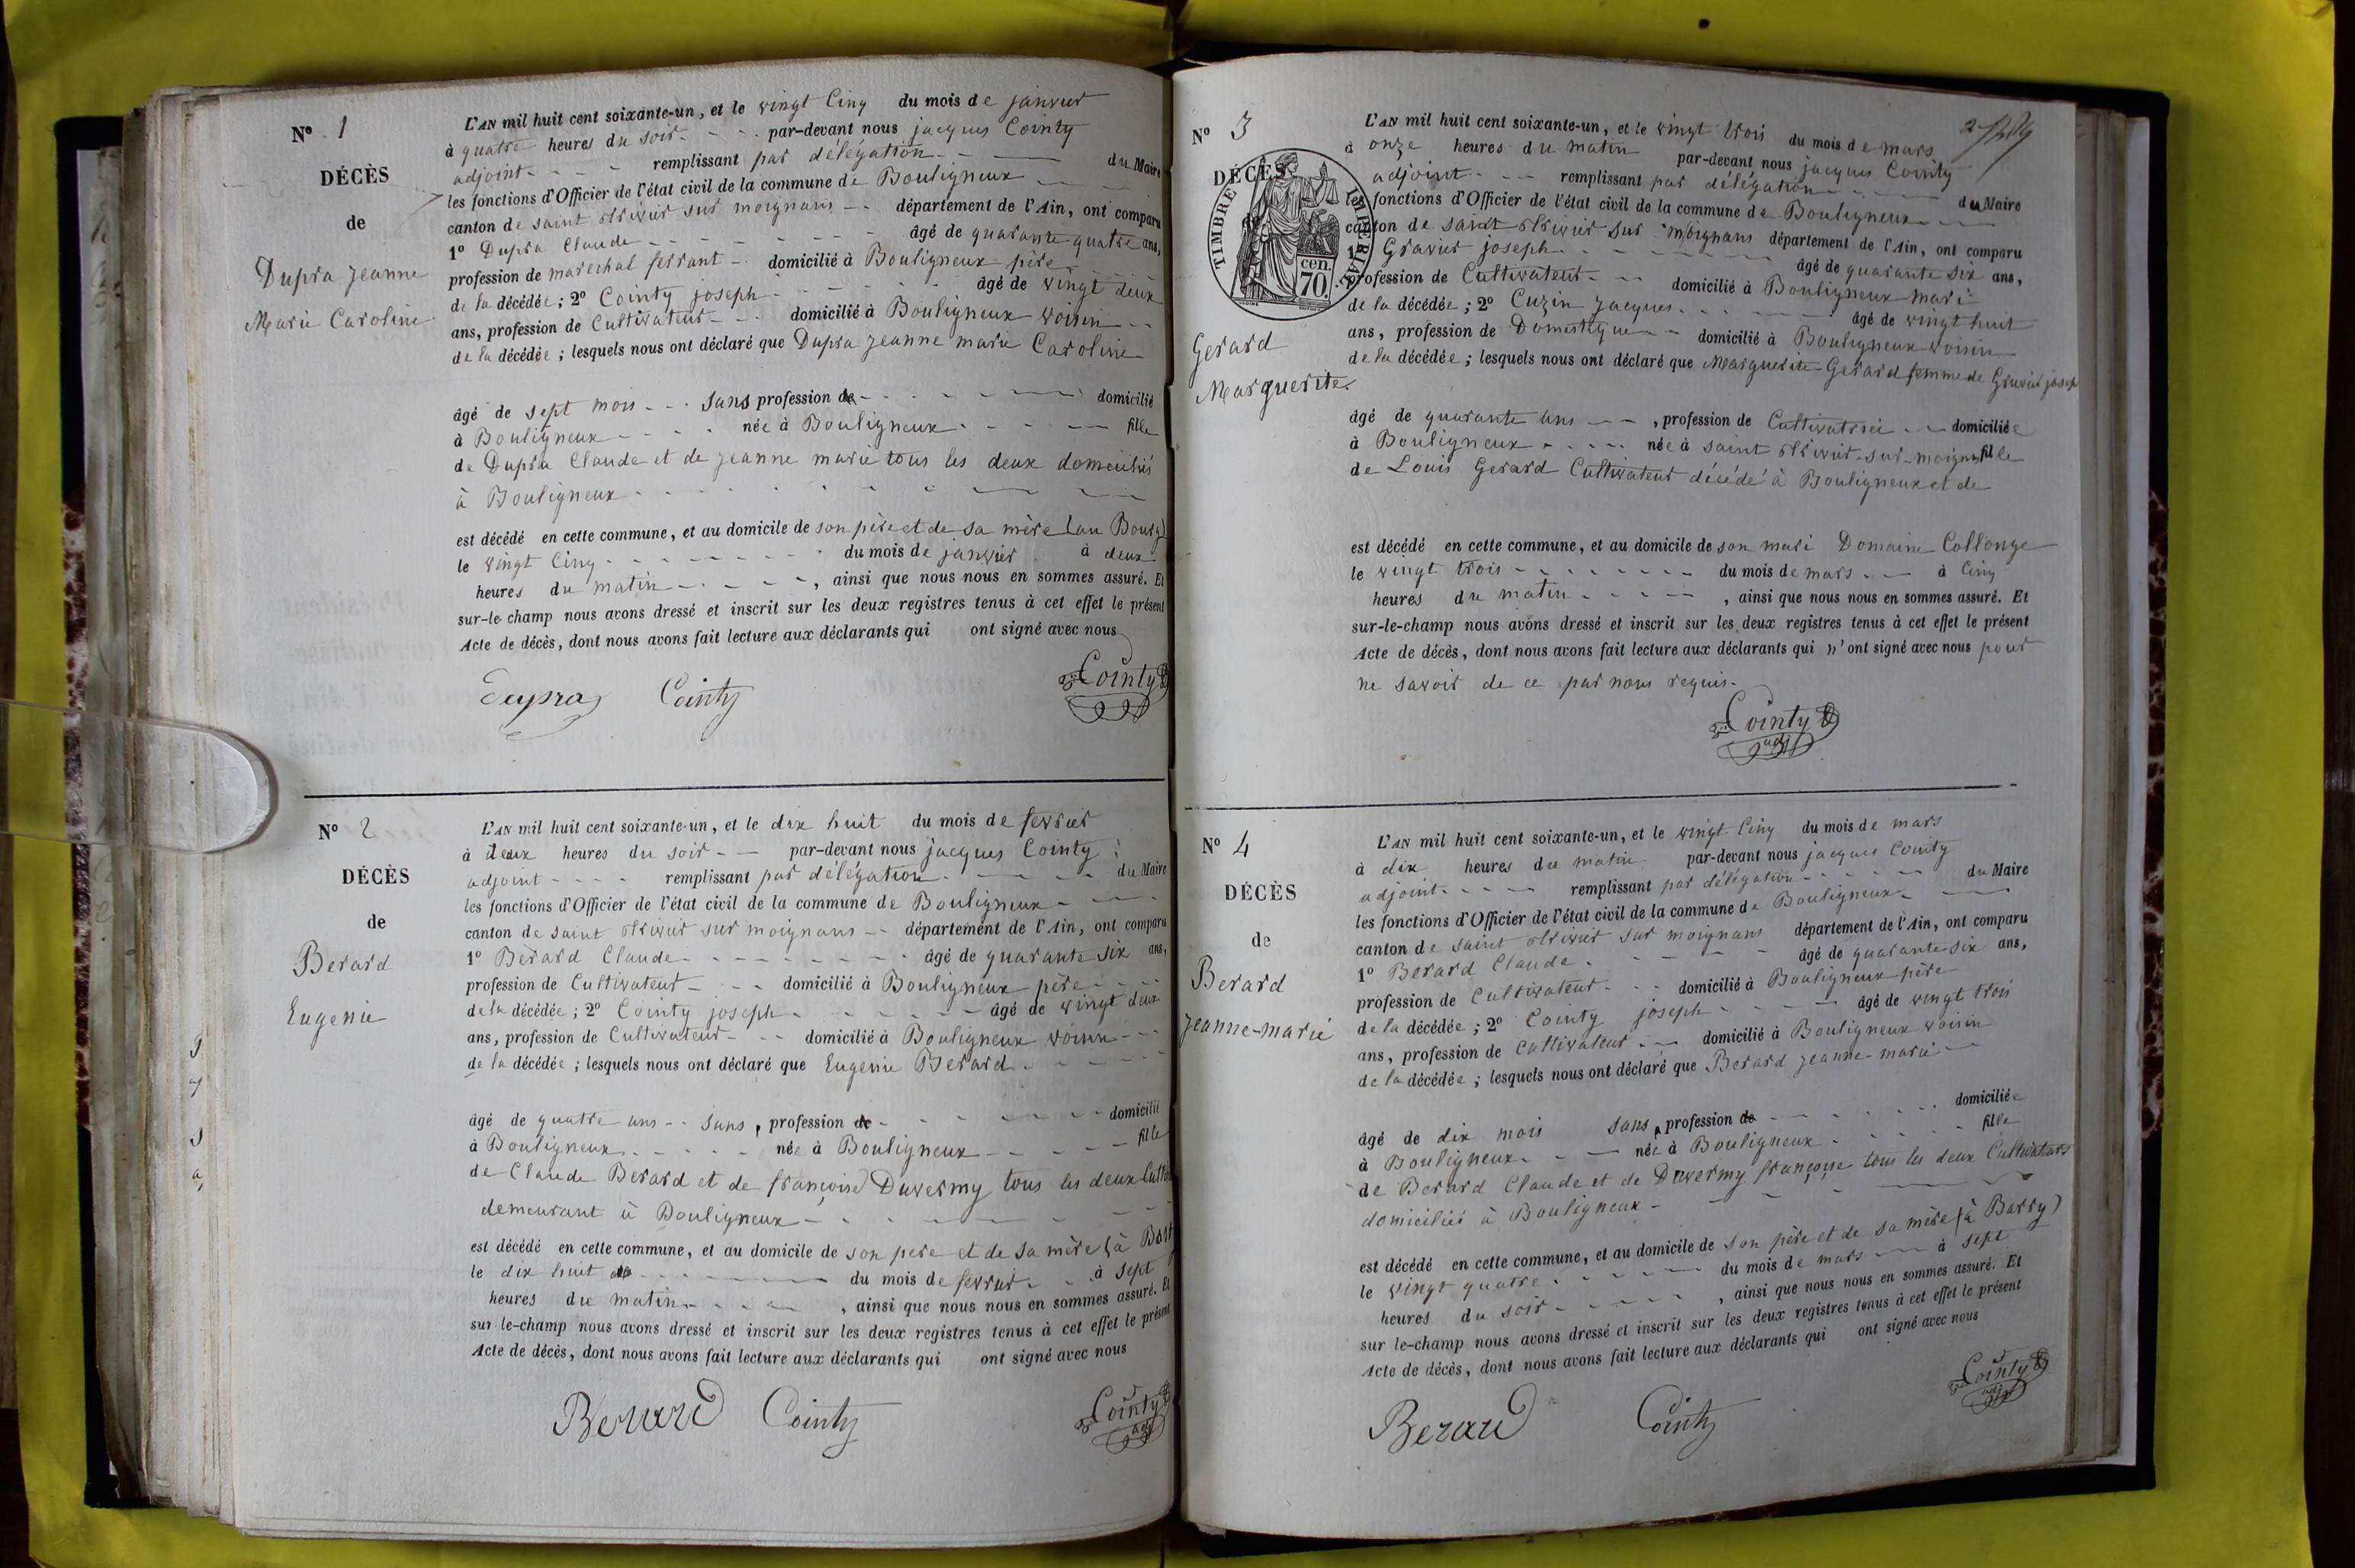 N° 1
DÉCÈS
de
Dupra Jeanne
Marie Caroline
L'AN mil huit cent soixante-un, et le vingt Cinq du mois de janvier
à quatre heures du soir - - - par-devant nous jacques Cointy
adjoint - - - remplissant par délégation - - - du Maire
les fonctions d'Officier de l'état civil de la commune de Bouligneux
canton de saint trivier sur moignans - - département de l'Ain, ont comparu
1° Dupra Claude - - - âgé de quarante quatre ans,
profession de marechal ferrant - domicilié à Bouligneux père
de la décédée ; 2° Cointy joseph - - - âgé de vingt deux
ans, profession de Cultivateur - - domicilié à Bouligneux voisin - -
de la décédée ; lesquels nous ont déclaré que Dupra jeanne marie Caroline
âgé de sept mois - - sans profession de - - - domicilié
à Bouligneux - - - née à Bouligneux - - - fille
de Dupra Claude et de jeanne marie tous les deux domiciliés
à Bouligneux - - -
est décédé en cette commune, et au domicile de son père et de sa mère (au Bourg)
le vingt Cinq - - - du mois de janvier à deux
heures du matin - - - , ainsi que nous nous en sommes assuré. Et
sur-le-champ nous avons dressé et inscrit sur les deux registres tenus à cet effet le présent
Acte de décès, dont nous avons fait lecture aux déclarants qui ont signé avec nous
Dupra Cointy Cointy
N° 2
DÉCÈS
de
Berard
Eugenie
L'AN mil huit cent soixante-un, et le dix huit du mois de fevrier
à deux heures du soir - - par-devant nous jacques Cointy
adjoint - - - remplissant par délégation - - - du Maire
les fonctions d'Officier de l'état civil de la commune de Bouligneux - - -
canton de saint trivier sur moignans - - département de l'Ain, ont comparu
1° Berard Claude - - - âgé de quarante six ans,
profession de Cultivateur - - - domicilié à Bouligneux père - - -
de la décédée ; 2° Cointy joseph - - - âgé de vingt deux
ans, profession de Cultivateur - - - domicilié à Bouligneux voisin - -
de la décédée ; lesquels nous ont déclaré que Eugenie Berard - - -
âgé de quatre ans - - sans, profession de - - - domicilié
à Bouligneux - - - née à Bouligneux - - - fille
de Claude Berard et de françoise Duvermy tous les deux
demeurant à Bouligneux - - -
est décédé en cette commune, et au domicile de son pere et de sa mère (à
le dix huit - - - du mois de fevrier - - à sept
heures du matin - - - , ainsi que nous nous en sommes assuré. Et
sur-le-champ nous avons dressé et inscrit sur les deux registres tenus à cet effet le présent
Acte de décès, dont nous avons fait lecture aux déclarants qui ont signé avec nous
Berard Cointy Cointy adj
N° 3
DÉCÈS
TIMBRE IMPERIAL
cen. 70.
Gerard
Marguerite
L'AN mil huit cent soixante-un, et le vingt trois du mois de mars
à onze heures du matin par-devant nous jacques Cointy
adjoint - - - remplissant par délégation - - - du Maire
les fonctions d'Officier de l'état civil de la commune de Bouligneux - - -
canton de saint trivier sur moignans département de l'Ain, ont comparu
1° Gravier joseph - - - âgé de quarante six ans,
profession de Cultivateur - - - domicilié à Bouligneux mari
de la décédée ; 2° Cuzin Jacques - - - âgé de vingt huit
ans, profession de Domestique - - domicilié à Bouligneux voisin
de la décédée ; lesquels nous ont déclaré que Marguerite Gerard femme de Gravier joseph
âgé de quarante ans - - , profession de Cultivatrice - - domiciliée
à Bouligneux - - - née à saint trivier-sur-moignans fille
de Louis Gerard Cultivateur décédé à Bouligneux et de
est décédé en cette commune, et au domicile de son mari Domaine Collonge
le vingt trois - - - du mois de mars - - à Cinq
heures du matin - - - , ainsi que nous nous en sommes assuré. Et
sur-le-champ nous avons dressé et inscrit sur les deux registres tenus à cet effet le présent
Acte de décès, dont nous avons fait lecture aux déclarants qui n'ont signé avec nous pour
ne savoir de ce par nous requis.
Cointy adj
N° 4
DÉCÈS
de
Berard
Jeanne-marie
L'AN mil huit cent soixante-un, et le vingt Cinq du mois de mars
à dix heures du matin par-devant nous jacques Cointy
adjoint - - - remplissant par délégation - - - du Maire
les fonctions d'Officier de l'état civil de la commune de Bouligneux -
canton de saint trivier sur moignans département de l'Ain, ont comparu
1° Berard Claude - - - âgé de quarante six ans,
profession de Cultivateur - - - domicilié à Bouligneux père
de la décédée ; 2° Cointy joseph - - - âgé de vingt trois
ans, profession de Cultivateur - - domicilié à Bouligneux voisin
de la décédée ; lesquels nous ont déclaré que Berard jeanne-marie -
âgé de dix mois sans, profession de - - - domiciliée
à Bouligneux - - - née à Bouligneux - - - fille
de Berard Claude et de Duvermy françoise tous les deux Cultivateurs
domiciliés à Bouligneux - - -
est décédé en cette commune, et au domicile de son père et de sa mère (à Barry)
le vingt quatre - - - du mois de mars - - à sept
heures du soir - - - , ainsi que nous nous en sommes assuré. Et
sur le-champ nous avons dressé et inscrit sur les deux registres tenus à cet effet le présent
Acte de décès, dont nous avons fait lecture aux déclarants qui ont signé avec nous
Berard Cointy Cointy adj